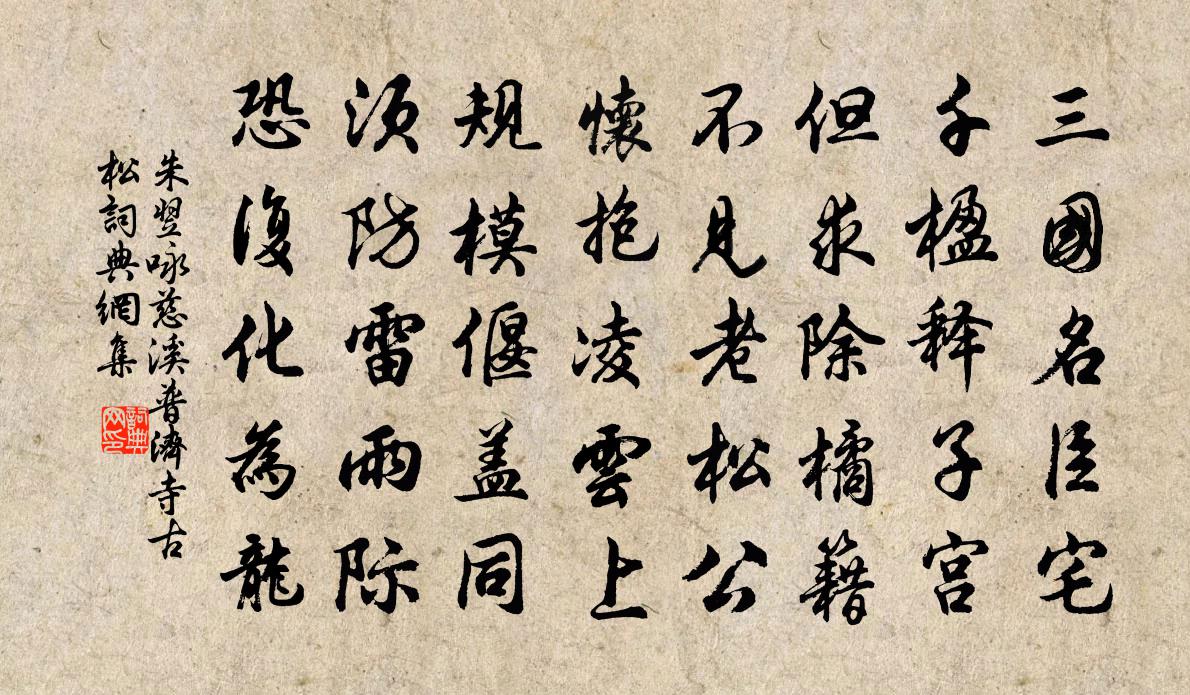 三國名臣宅
千楹释子宫
但求除橘籍
不見老松公
懷抱凌雲上
規模偃盖同
須防雷雨际
恐復化為龍
朱翌咏慈溪普濟寺古
松詞典網集
詞典网印